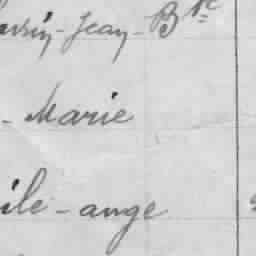 -Jean-Bte
- Marie
ile-ange